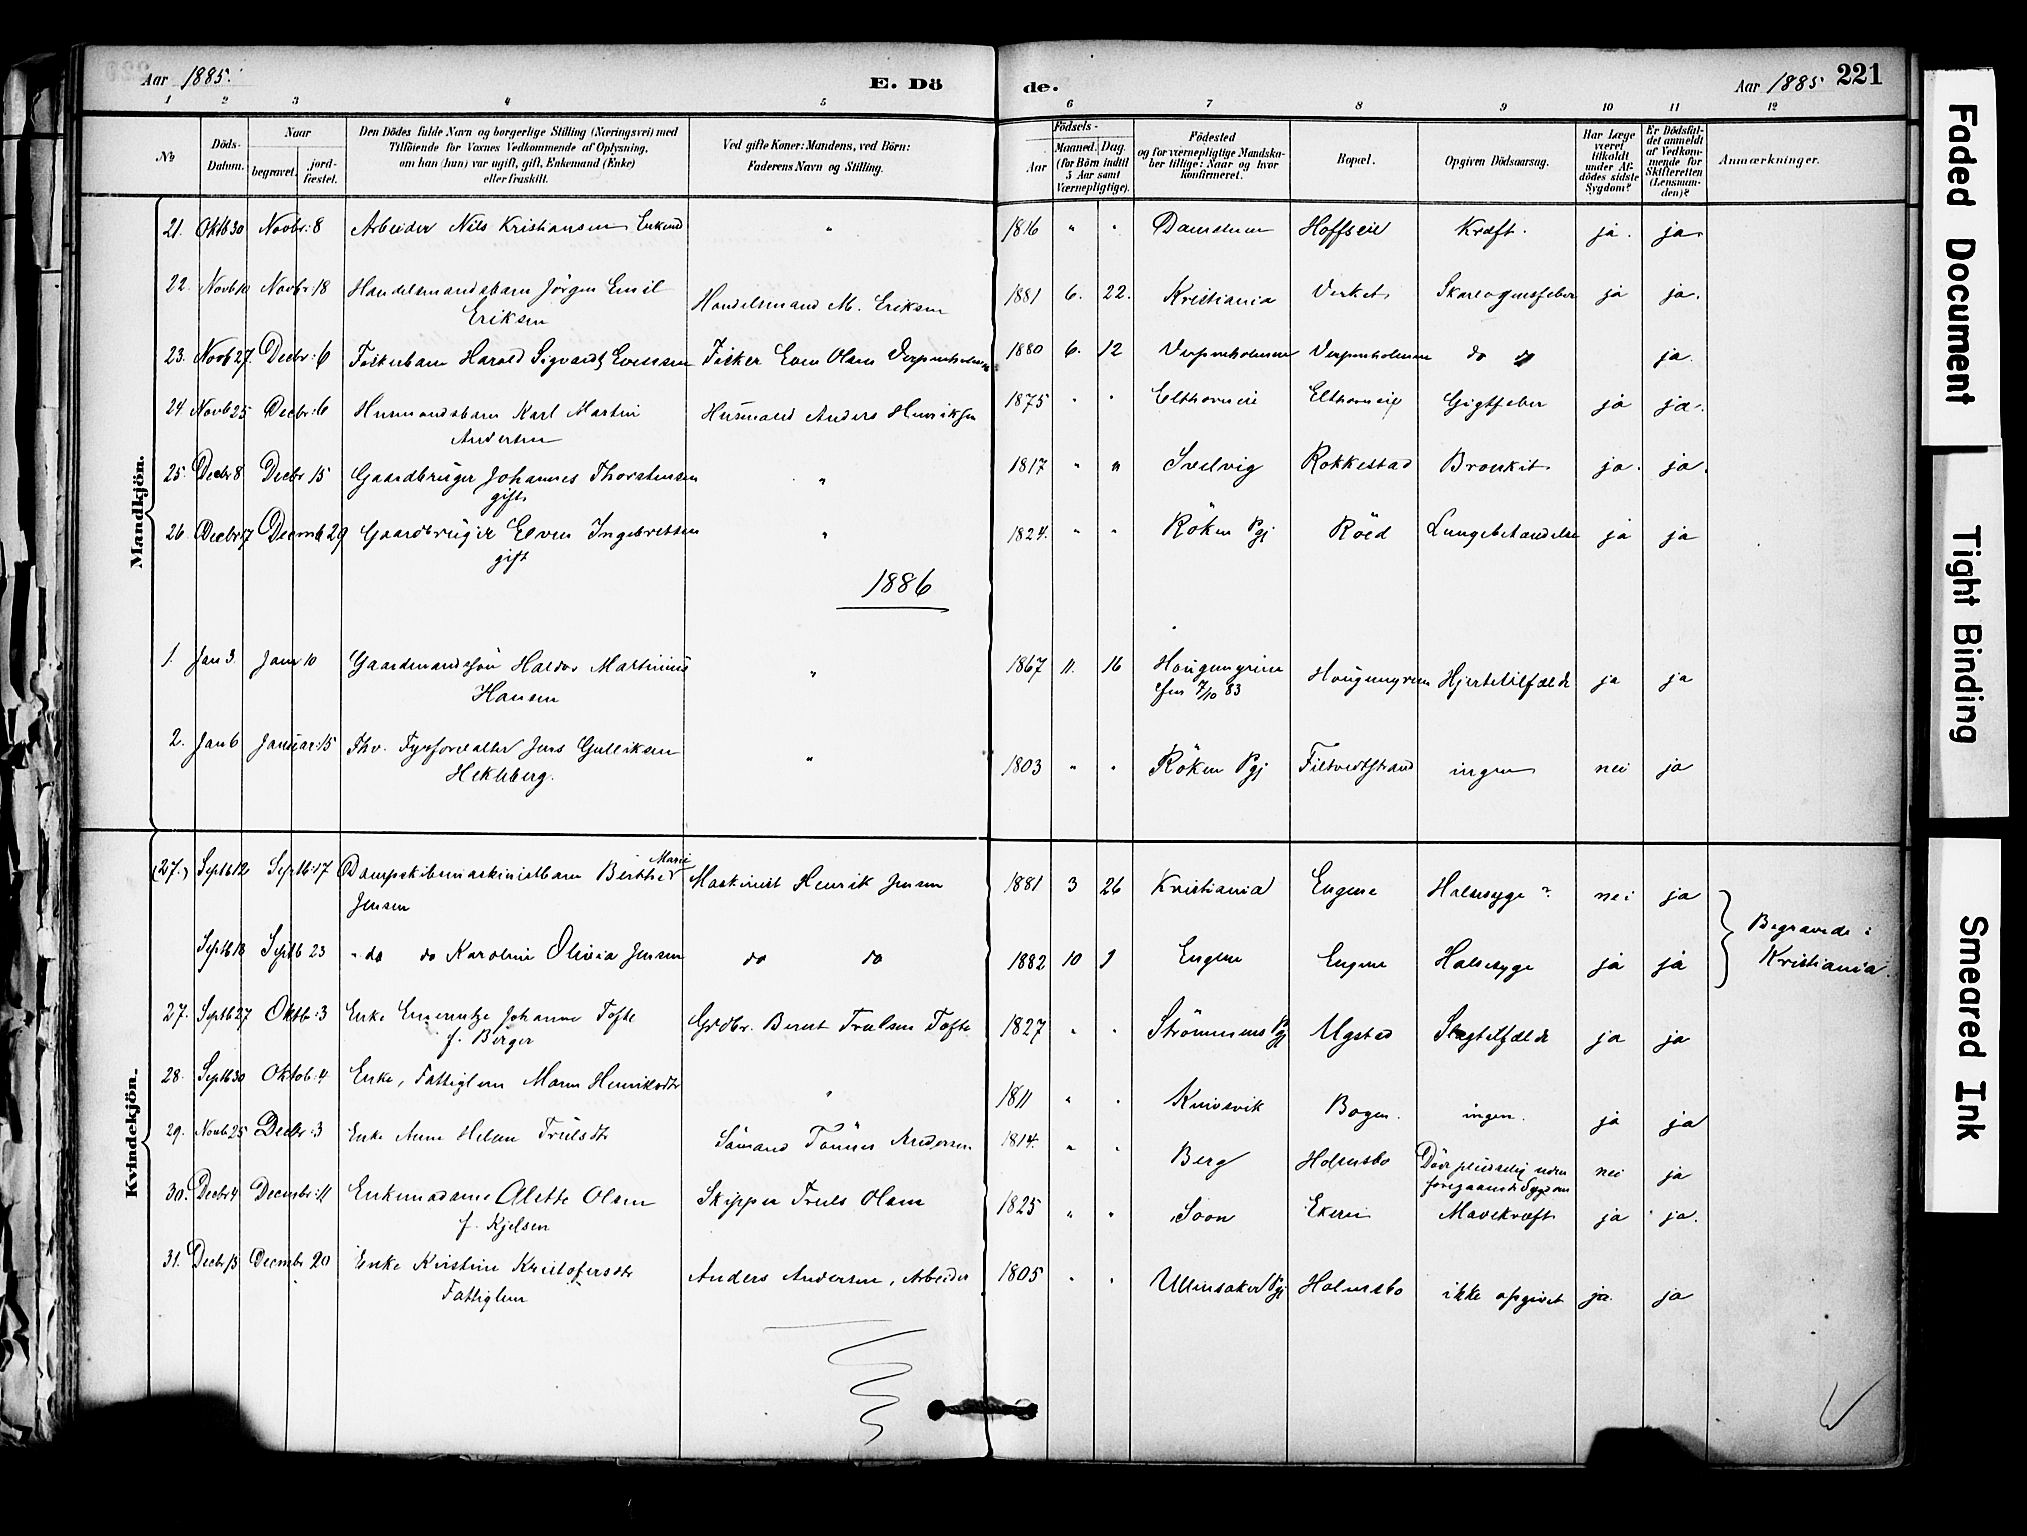 Aar 1885.
E. Dö
de.
Aar 1885 221
1 2 3 4 5 6 7 8 9 10 11 12
No
Döds-Datum.
Naar
begravet.
jord-fæstet.
Den Dödes fulde Navn og borgerlige Stilling (Næringsvei) med
Tilföiende for Voxnes Vedkommende af Oplysning,
om han (hun) var ugift, gift, Enkemand (Enke)
eller fraskilt.
Ved gifte Koner: Mandens, ved Börn:
Faderens Navn og Stilling.
Födsels-
Aar
Maaned. Dag.
(for Börn indtil
5 Aar samt
Værnepligtige).
Födested
og for værnepligtige Mandska-
ber tillige: Naar og hvor
konfirmeret.
Bopæl.
Opgiven Dödsaarsag.
Har Læge
været
tilkaldt
under Af-
dödes sidste
Sygdom?
Er Dödsfal-
det anmeldt
af Vedkom-
mende for
Skifteretten
(Lensman-
den)?
Anmærkninger.
Mandkjön.
21. Oktb 30 Novbr: 8 Arbeider Nils Kristiansen Enkemd " 1816 " " Hoffseie Kræft. ja. ja.
22. Novb 10 Novbr 18 Handelsmandsbarn Jörgen Emil Handelsmand M. Eriksen 1881 6. 22. Kristiania Verket ja ja.
Eriksen
23. Novb 27. Decbr: 6 Fiskerbarn Harald Sigvardt Evensen Fisker Even Olsen 1880 6. 12 do do ja.
24 Novb 25 Decbr: 6 Husmandsbarn Karl Martin Husmand Anders Henriksen 1875 " " Gigtfeber ja ja.
Andersen
25. Decbr 8 Decbr 15 Gaardbruger Johannes Thorstensen " 1817 " " Svelvig Rokkestad Bronkit. ja. ja.
gift
26. Decbr 17 Decmb 29 Gaardbruger Even Ingebretsen " 1824. " " Röken Pgj Röed Lungebetændelse ja ja
gift
1886
1. Jan 3. Janr 10 Gaardmandssön Haldor Martinius " 1867 11. 16 Hougungrini Hougungrini Hjertetilfælde ja ja
Hansen 7/10 83
2. Jan 6 Januar: 15 Fhv. Fyrforvalter Jens Gulliksen " 1803 " " Röken Pgj Filtvedtstrand ingen nei ja
Hekleberg.
Kvindekjön.
(27.) Septb 12 Septb: 17 Dampskibsmaskinistbarn Berthe Marie Maskinist Henrik Jensen 1881 3 26 Kristiania Engene Halssyge? nei ja
Jensen
Septb 18 Septb 23 " do do Karoline Olivia Jensen do do 1882 10 9 Engene Engene Halssyge ja ja
Begravede i
Kristiania.
27. Septb 27 Oktb: 3 Enke Emerentze Johanne Tofte Grdbr. Bernt Trulsen Tofte 1827 " " Strömmens Pgj Ugstad Slagtilfælde ja ja
f. Berger
28. Septb 30 Oktob: 4 Enke, Fattiglem Maren Henriksdtr " 1811 " " Knivsvik Bogen. ingen. ja ja
29. Novb 25 Decbr: 3 Enke Anne Helene Trulsdtr Sömand Tönnes Andersen 1814. " " Berg Holmsbo Döde pludselig uden nei ja
foregaaende Sygdom
30. Decbr 4 Decmbr: 11 Enkemadame Alette Olsen Skipper Truls Olsen 1825 " " Soon Ekeren Mavekræft ja ja.
f. Kjelsen
31. Decbr 13 Decmbr 20 Enke Kirstine Kristofersdtr Anders Andersen, Arbeider 1805 " " Ullensaker Pgj Holmsbo ikke opgivet ja. ja
Fattiglem
Faded Document
Tight Binding
Smeared Ink